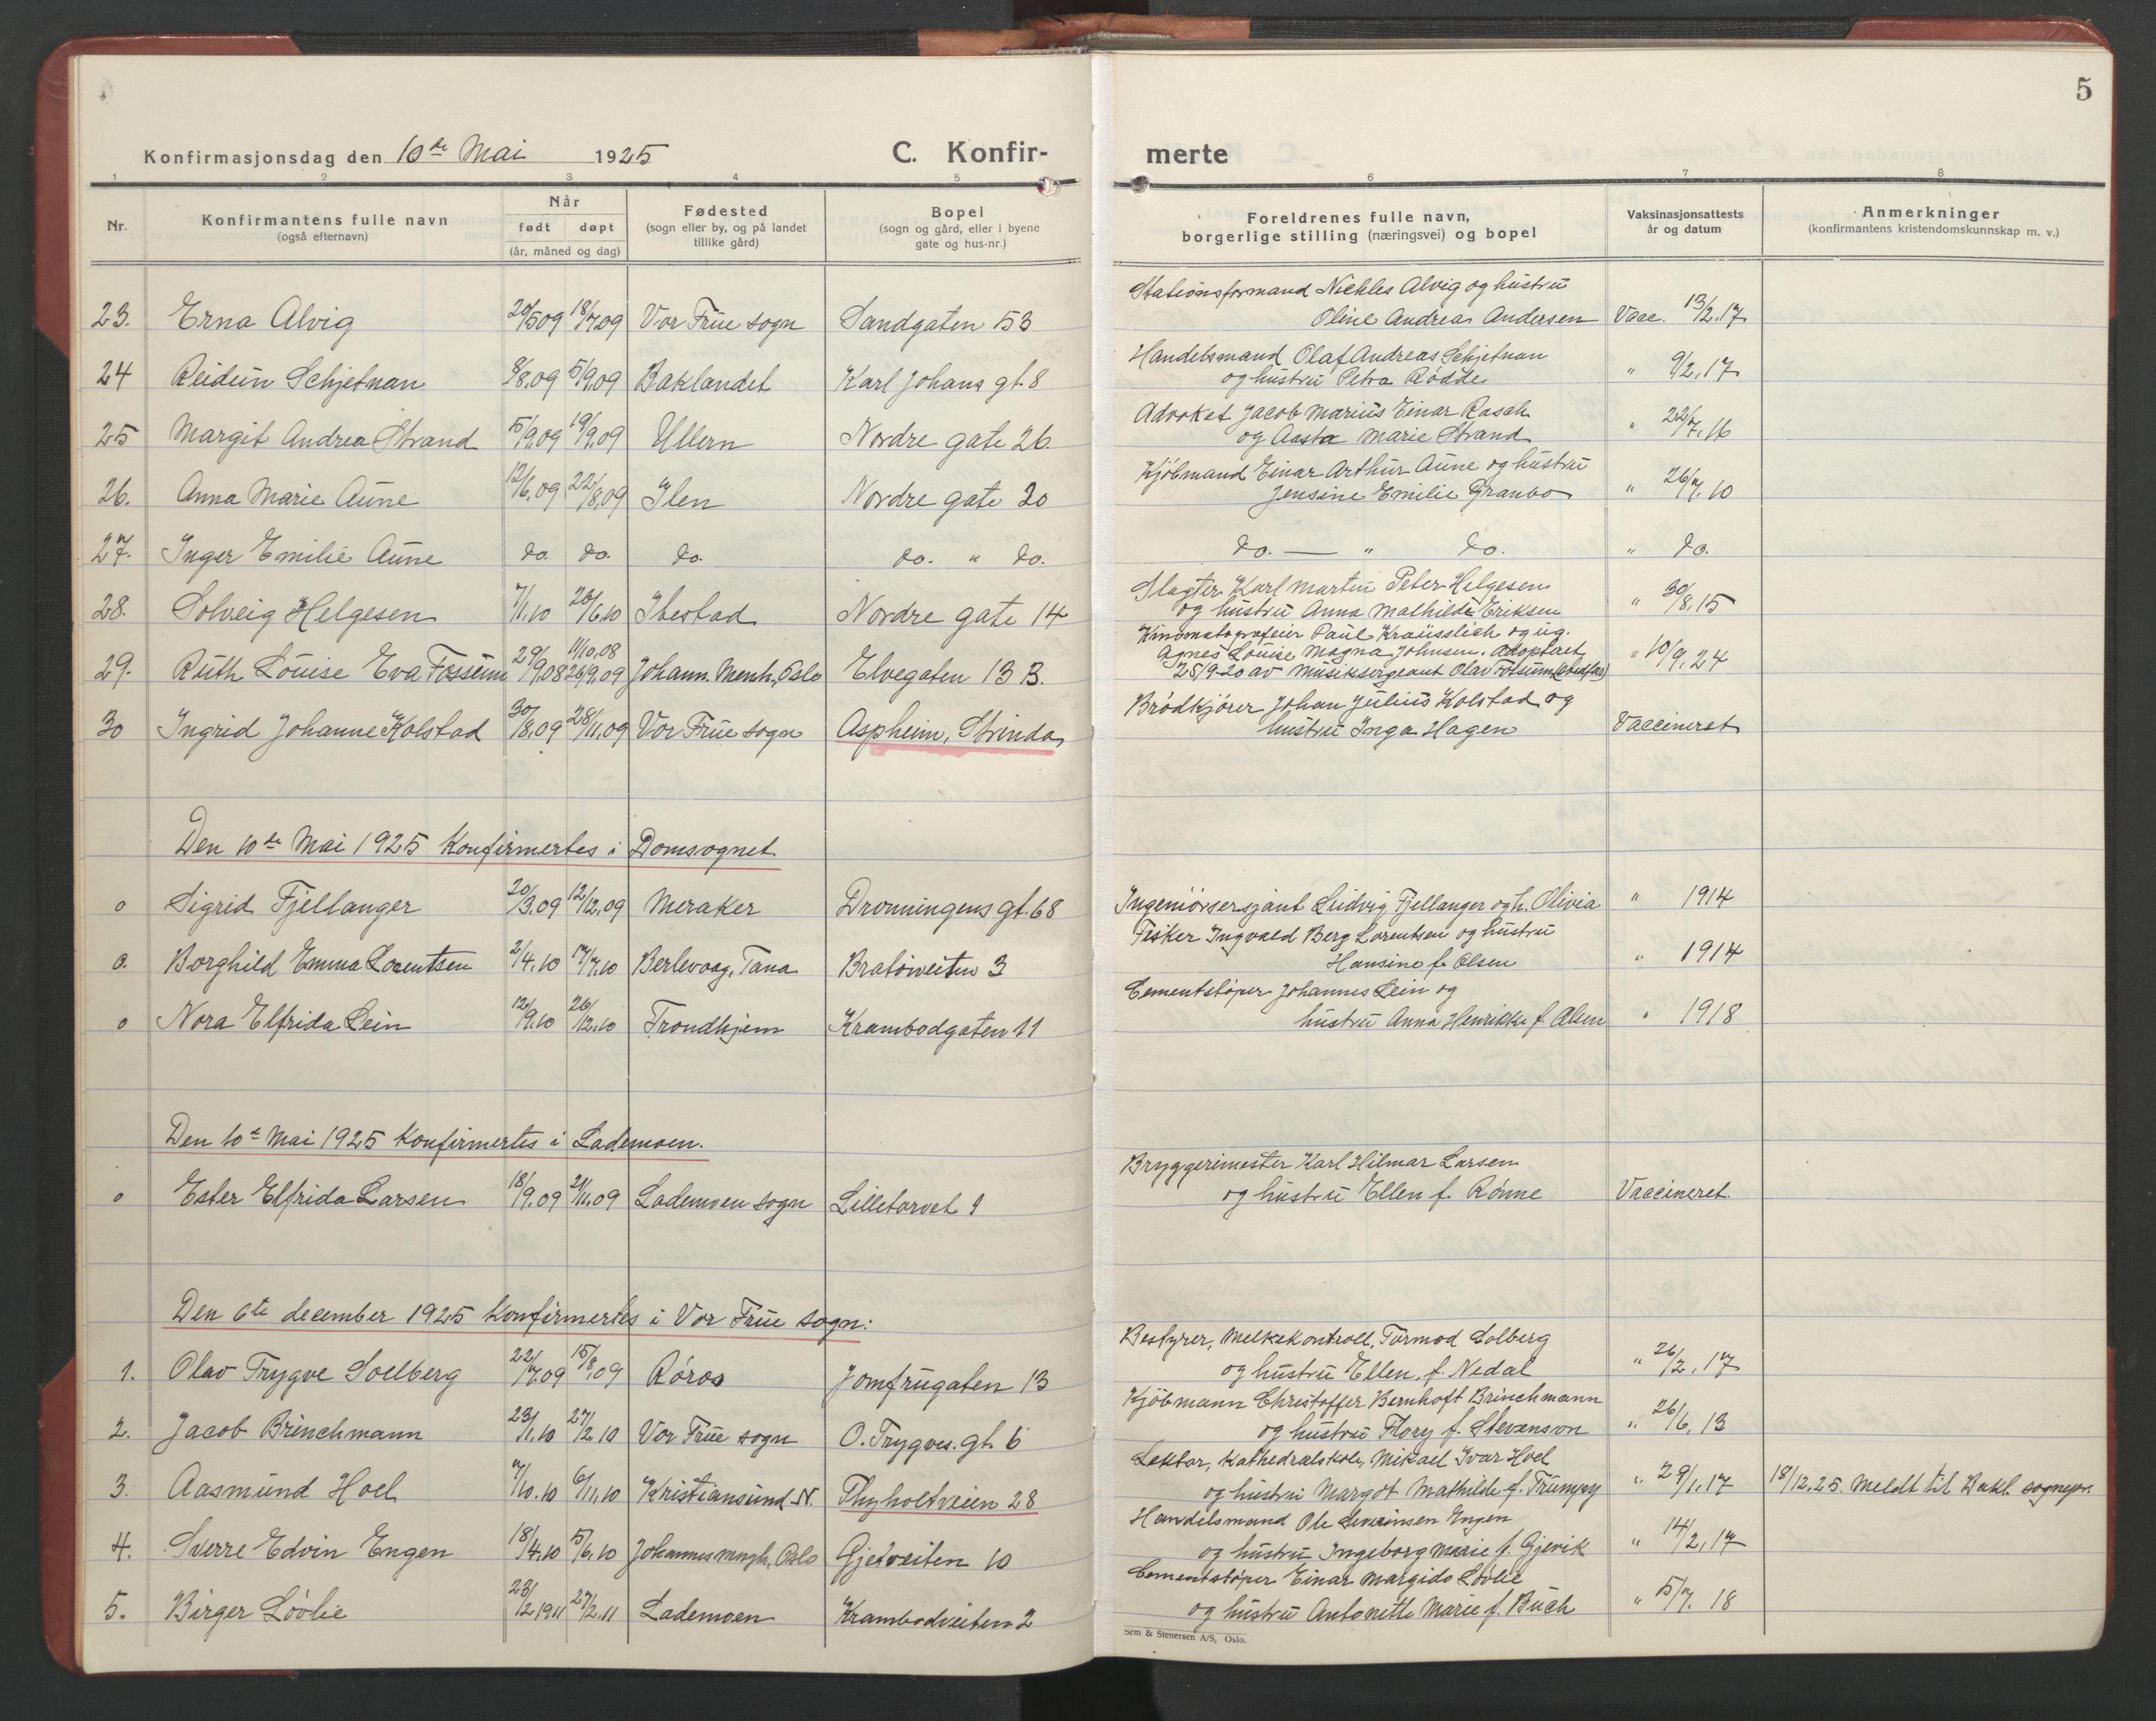 5
Konfirmasjonsdag den 10de Mai 1925 C. Konfir- merte
1 2 3 4 5 6 7 8
Nr. Konfirmantens fulle navn (også efternavn) Når født døpt (år, måned og dag) Fødested (sogn eller by, og på landet tillike gård) Bopel (sogn og gård, eller i byene gate og hus-nr.) Foreldrenes fulle navn, borgerlige stilling (næringsvei) og bopel Vaksinasjonsattests år og datum Anmerkninger (konfirmantens kristendomskunnskap m. v.)
Stationsformand Nickles Alvig og hustru
23. Erna Alvig 20/5 09 18/7.09 Vor Frue sogn Sandgaten 53 Oline Andrea Andersen Vacc. 13/2.17
Handelsmand Olaf Andreas Schjetnan
24 Reidun Schjetnan 8/8.09 5/9.09 Baklandet Karl Johans gt 8 og hustru Petra Rødde " 9/2.17
Advokat Jacob Marius Einar Rasch
25 Margit Andrea Strand 5/9.09 19/9.09 Ullern Nordre gate 26. og Aasta Marie Strand " 22/7.16
Kjøbmand Einar Arthur Aune og hustru
26. Anna Marie Aune 12/6.09 22/8.09 Ilen Nordre gate 20 Jensine Emilie Granbo " 26/7.10
27. Inger Emilie Aune do. do. do. do. " do. do. — " do. " do.
Slagter Karl Martin Peter Helgesen
28. Solveig Helgesen 7/1.10 26/6.10 Ibestad Nordre gate 14 og hustru Anna Mathilde Eriksen " 30/8.15
Kinomatografeier Paul Kraüsslich og ug.
11/10.08 Agnes Louise Magna Johnsen. Adoptert
29. Ruth Louise Eva Fossum 29/9.08 26/9.09 Johann. Menh., Oslo Elvegaten 13 B. 25/9-20 av Musiksergeant Olav Fossum (stedfar) " 10/9.24
Brødkjører Johan Julius Kolstad og
30 Ingrid Johanne Kolstad 30/8.09 28/11.09 Vor Frue sogn Aspheim, Strinda hustru Inga Hagen Vaccineret
Den 10de Mai 1925 Konfirmertes i Domsognet.
o Sigrid Fjellanger 20/3.09 12/12.09 Meraker Dronningens gt. 68 Ingeniørsersjant Ludvig Fjellanger og h. Olivia " 1914
Fisker Ingvald Berg Lorentsen og hustru
o. Borghild Emma Lorentsen 2/4.10 17/7.10 Berlevaag, Tana Bratørveiten 3 Hansine f. Olsen " 1914
Cementstøper Johannes Lein og
o Nora Elfrida Lein 12/9.10 26/12.10 Trondhjem Krambodgaten 11 hustru Anna Henrikke f. Olsen " 1918
Den 10de Mai 1925 Konfirmertes i Lademoen.
Bryggerimester Karl Hilmar Larsen
o Ester Elfrida Larsen 18/9.09 21/11.09 Lademoen sogn Lilletorvet 1 og hustru Ellen f. Rønne Vaccineret.
Den 6te december 1925 Konfirmertes i Vor Frue sogn:
Bestyrer, Melkekontroll, Turmod Solberg
1. Olav Trygve Soelberg 22/7.09 15/8.09 Røros Jomfrugaten 13 og hustru Ellen, f. Nedal " 26/2.17
Kjøbmann Christoffer Bernhoft Brinchmann
2. Jacob Brinchmann 23/1.10 27/2.10 Vor Frue sogn O. Trygves. gt. 6 og hustru Flory f. Stevenson " 26/6.13
Lektor, Kathedralskole, Mikael Ivar Hoel
3. Aasmund Hoel 7/10.10 6/11.10 Kristiansund N. Thyholtveien 28 og hustru Margot Mathilde f. Trumpy " 29/1.17 18/12.25. Meldt til Bakl. sognepr.
Handelsmand Ole Severinsen Engen
4. Sverre Edvin Engen 18/4.10 5/6.10 Johannes mengh. Oslo Gjetveiten 10 og hustru Ingeborg Marie f. Gjevik " 14/2.17
Cementstøper Einar Margido Løvlie
5. Birger Løvlie 23/2 1911 27/2.11 Lademoen Krambodveiten 2 og hustru Antonette Marie f. Buch " 5/7.18
Sem & Stenersen A/S, Oslo.